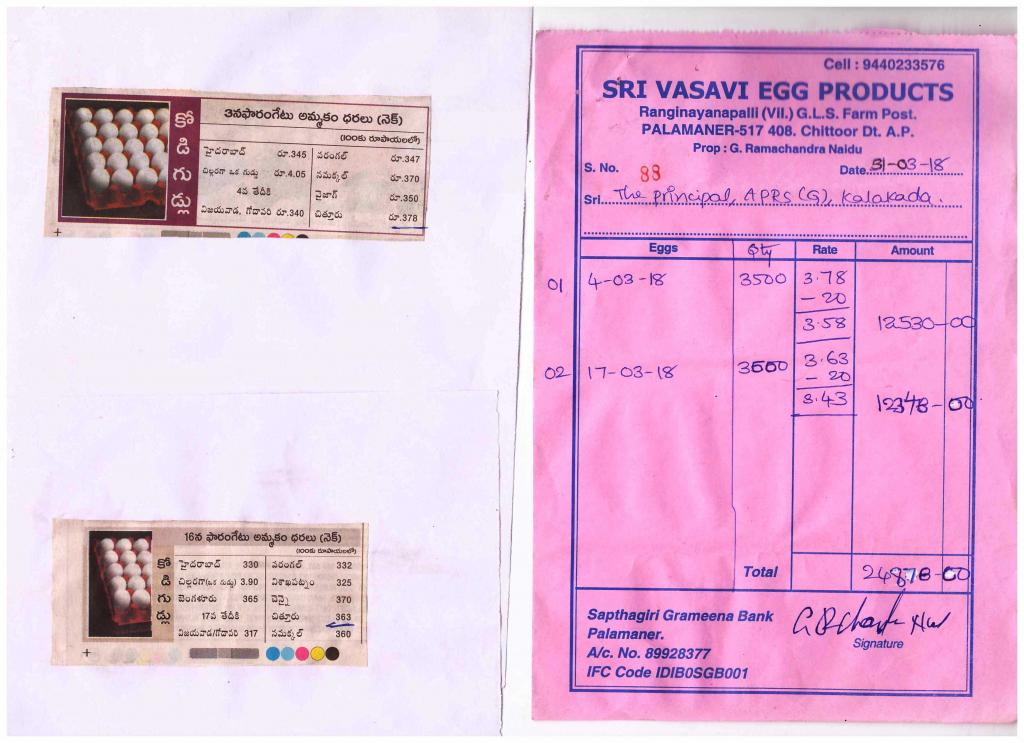 కోడిగుడ్లు
3నఫారంగేటు అమ్మకం ధరలు (నెక్)
(100కు రూపాయలలో)
హైదరాబాద్ రూ.345 వరంగల్ రూ.347
చిల్లరగా ఒక గుడ్డు రూ.4.05 నమక్కల్ రూ.370
4వ తేదీకి వైజాగ్ రూ.350
విజయవాడ, గోదావరి రూ.340 చిత్తూరు రూ.378
కోడిగుడ్లు
16న ఫారంగేటు అమ్మకం ధరలు (నెక్)
(100కు రూపాయలలో)
హైదరాబాద్ 330 వరంగల్ 332
చిల్లరగా(ఒక గుడ్డు) 3.90 విశాఖపట్నం 325
బెంగళూరు 365 చెన్నై 370
17వ తేదీకి చిత్తూరు 363
విజయవాడ/గోదావరి 317 నమక్కల్ 360
Cell : 9440233576
SRI VASAVI EGG PRODUCTS
Ranginayanapalli (Vil.) G.L.S. Farm Post.
PALAMANER-517 408. Chittoor Dt. A.P.
Prop : G. Ramachandra Naidu
S. No. 88 Date 31-03-18
Sri The principal, APRS (G), Kalakada.
Eggs Qty Rate Amount
01 4-03-18 3500 3.78
- 20
3.58 12530-00
02 17-03-18 3600 3.63
- 20
3.43 12348-00
Total 24878-00
Sapthagiri Grameena Bank
Palamaner.
A/c. No. 89928377
IFC Code IDIB0SGB001
Signature